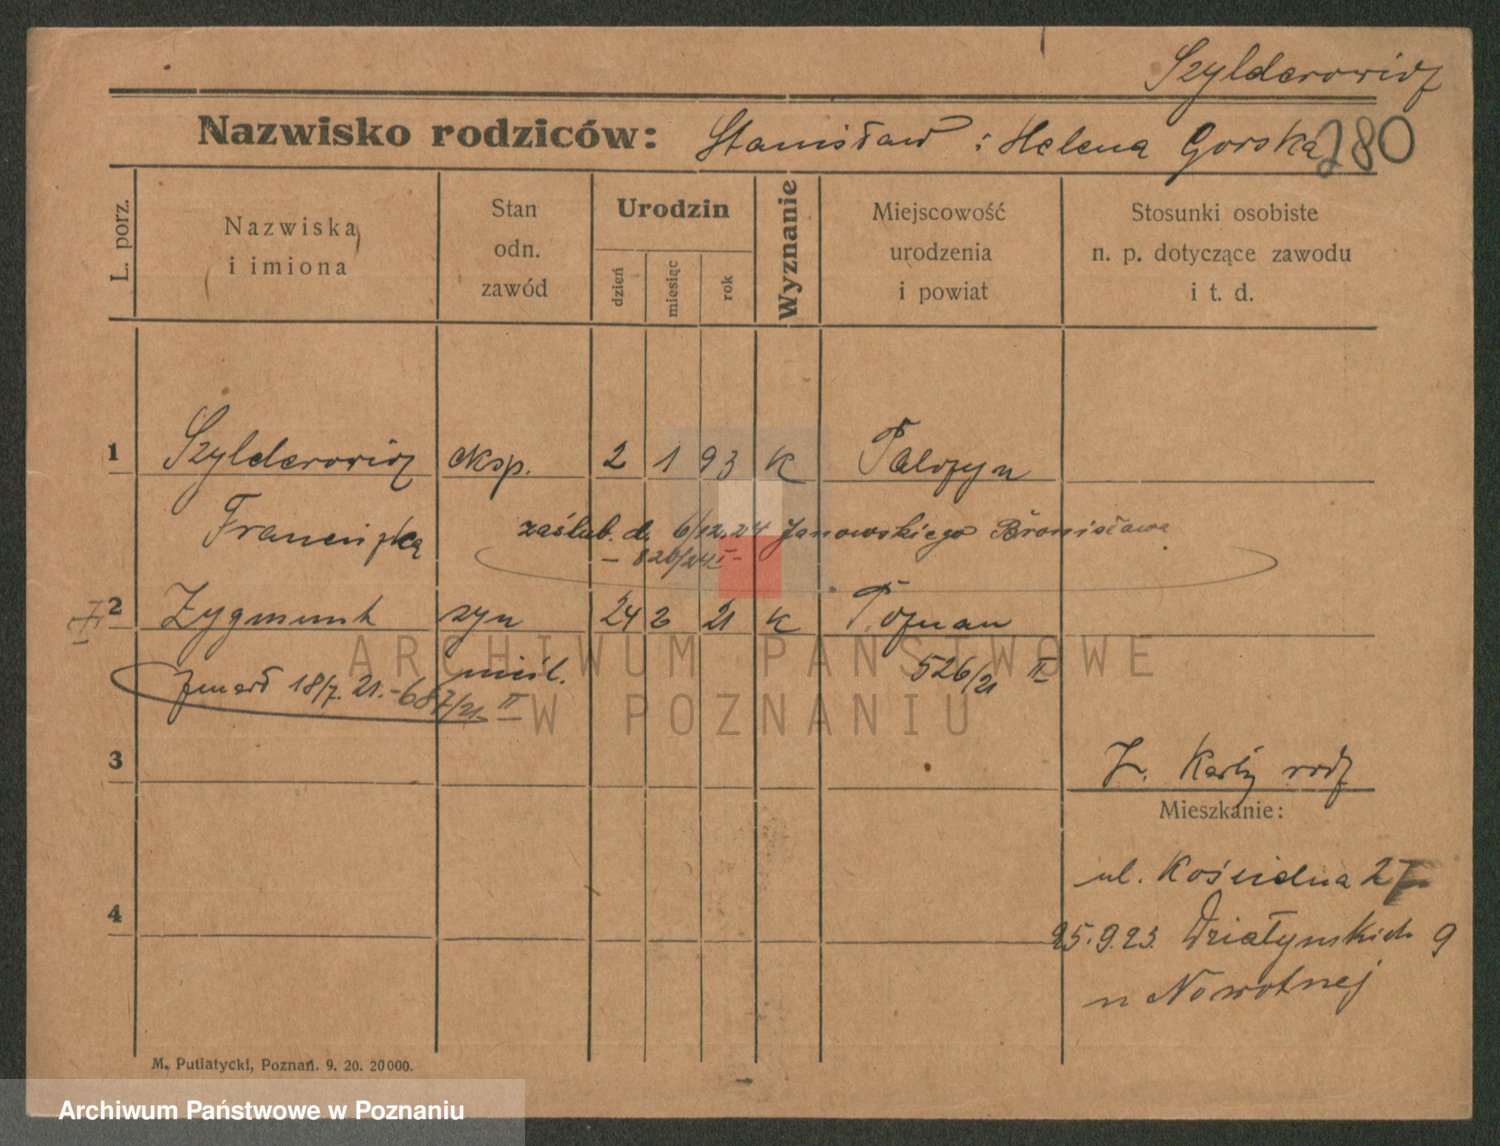 Szylderowicz
Nazwisko rodziców: Stanisław i Helena Gorska 280
L. porz.
Nazwiska i imiona
Stan odn. zawód
Urodzin
dzień
miesiąc
rok
Wyznanie
Miejscowość urodzenia i powiat
Stosunki osobiste n. p. dotyczące zawodu i t. d.
1 Szylderowicz eksp. 2 1 93 K
Franciszka zaślub. d. 6/12.24 Janowskiego Bronisława
– 826/24 I –
2 Zygmunt syn 24 2 21 K Poznan
nieśl. 526/21 II
zmarł 18/7. 21. – 687/21 II
3
Z. Karty rodz
Mieszkanie:
ul. Kościelna 27
4
25.9.23. Działyńskich 9
u Nowotnej
M. Putiatycki, Poznań. 9. 20. 20 000.
ARCHIWUM PAŃSTWOWE
W POZNANIU
Archiwum Państwowe w Poznaniu